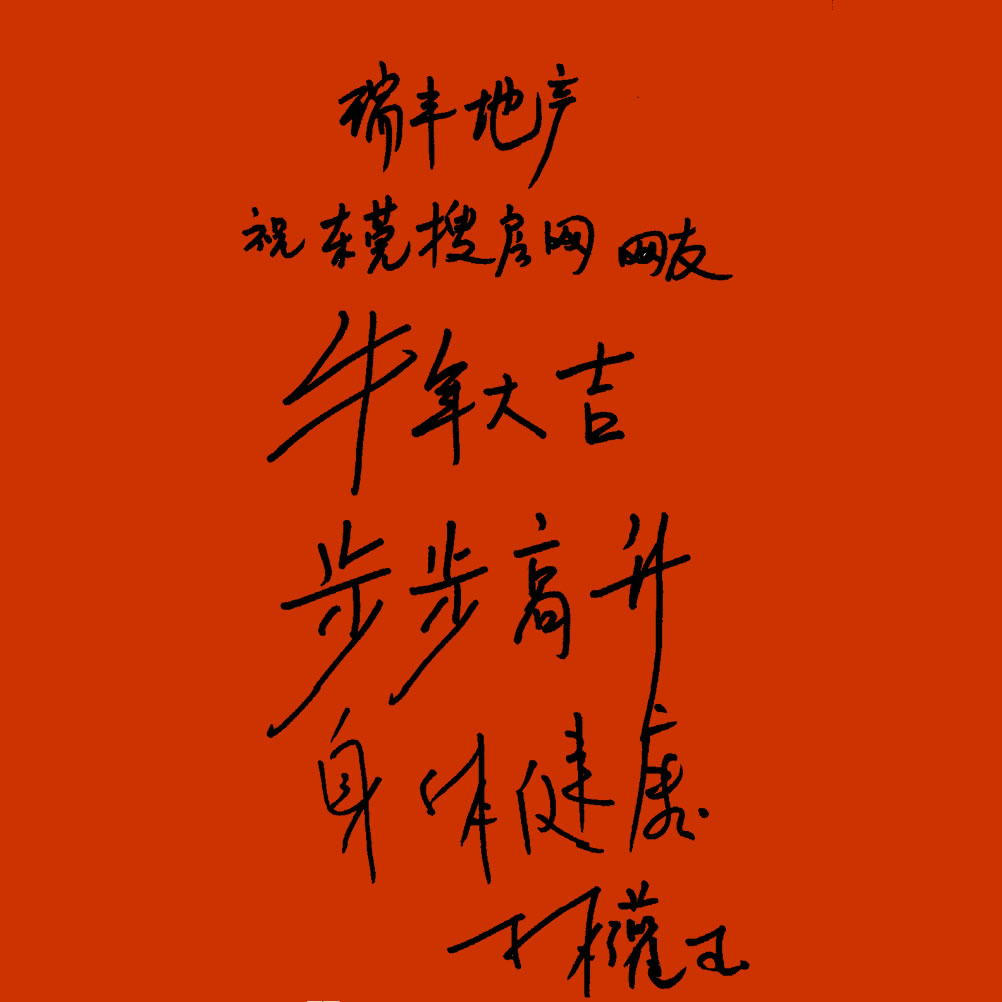 瑞丰地产
祝东莞搜房网 网友
牛年大吉
步步高升
身体健康